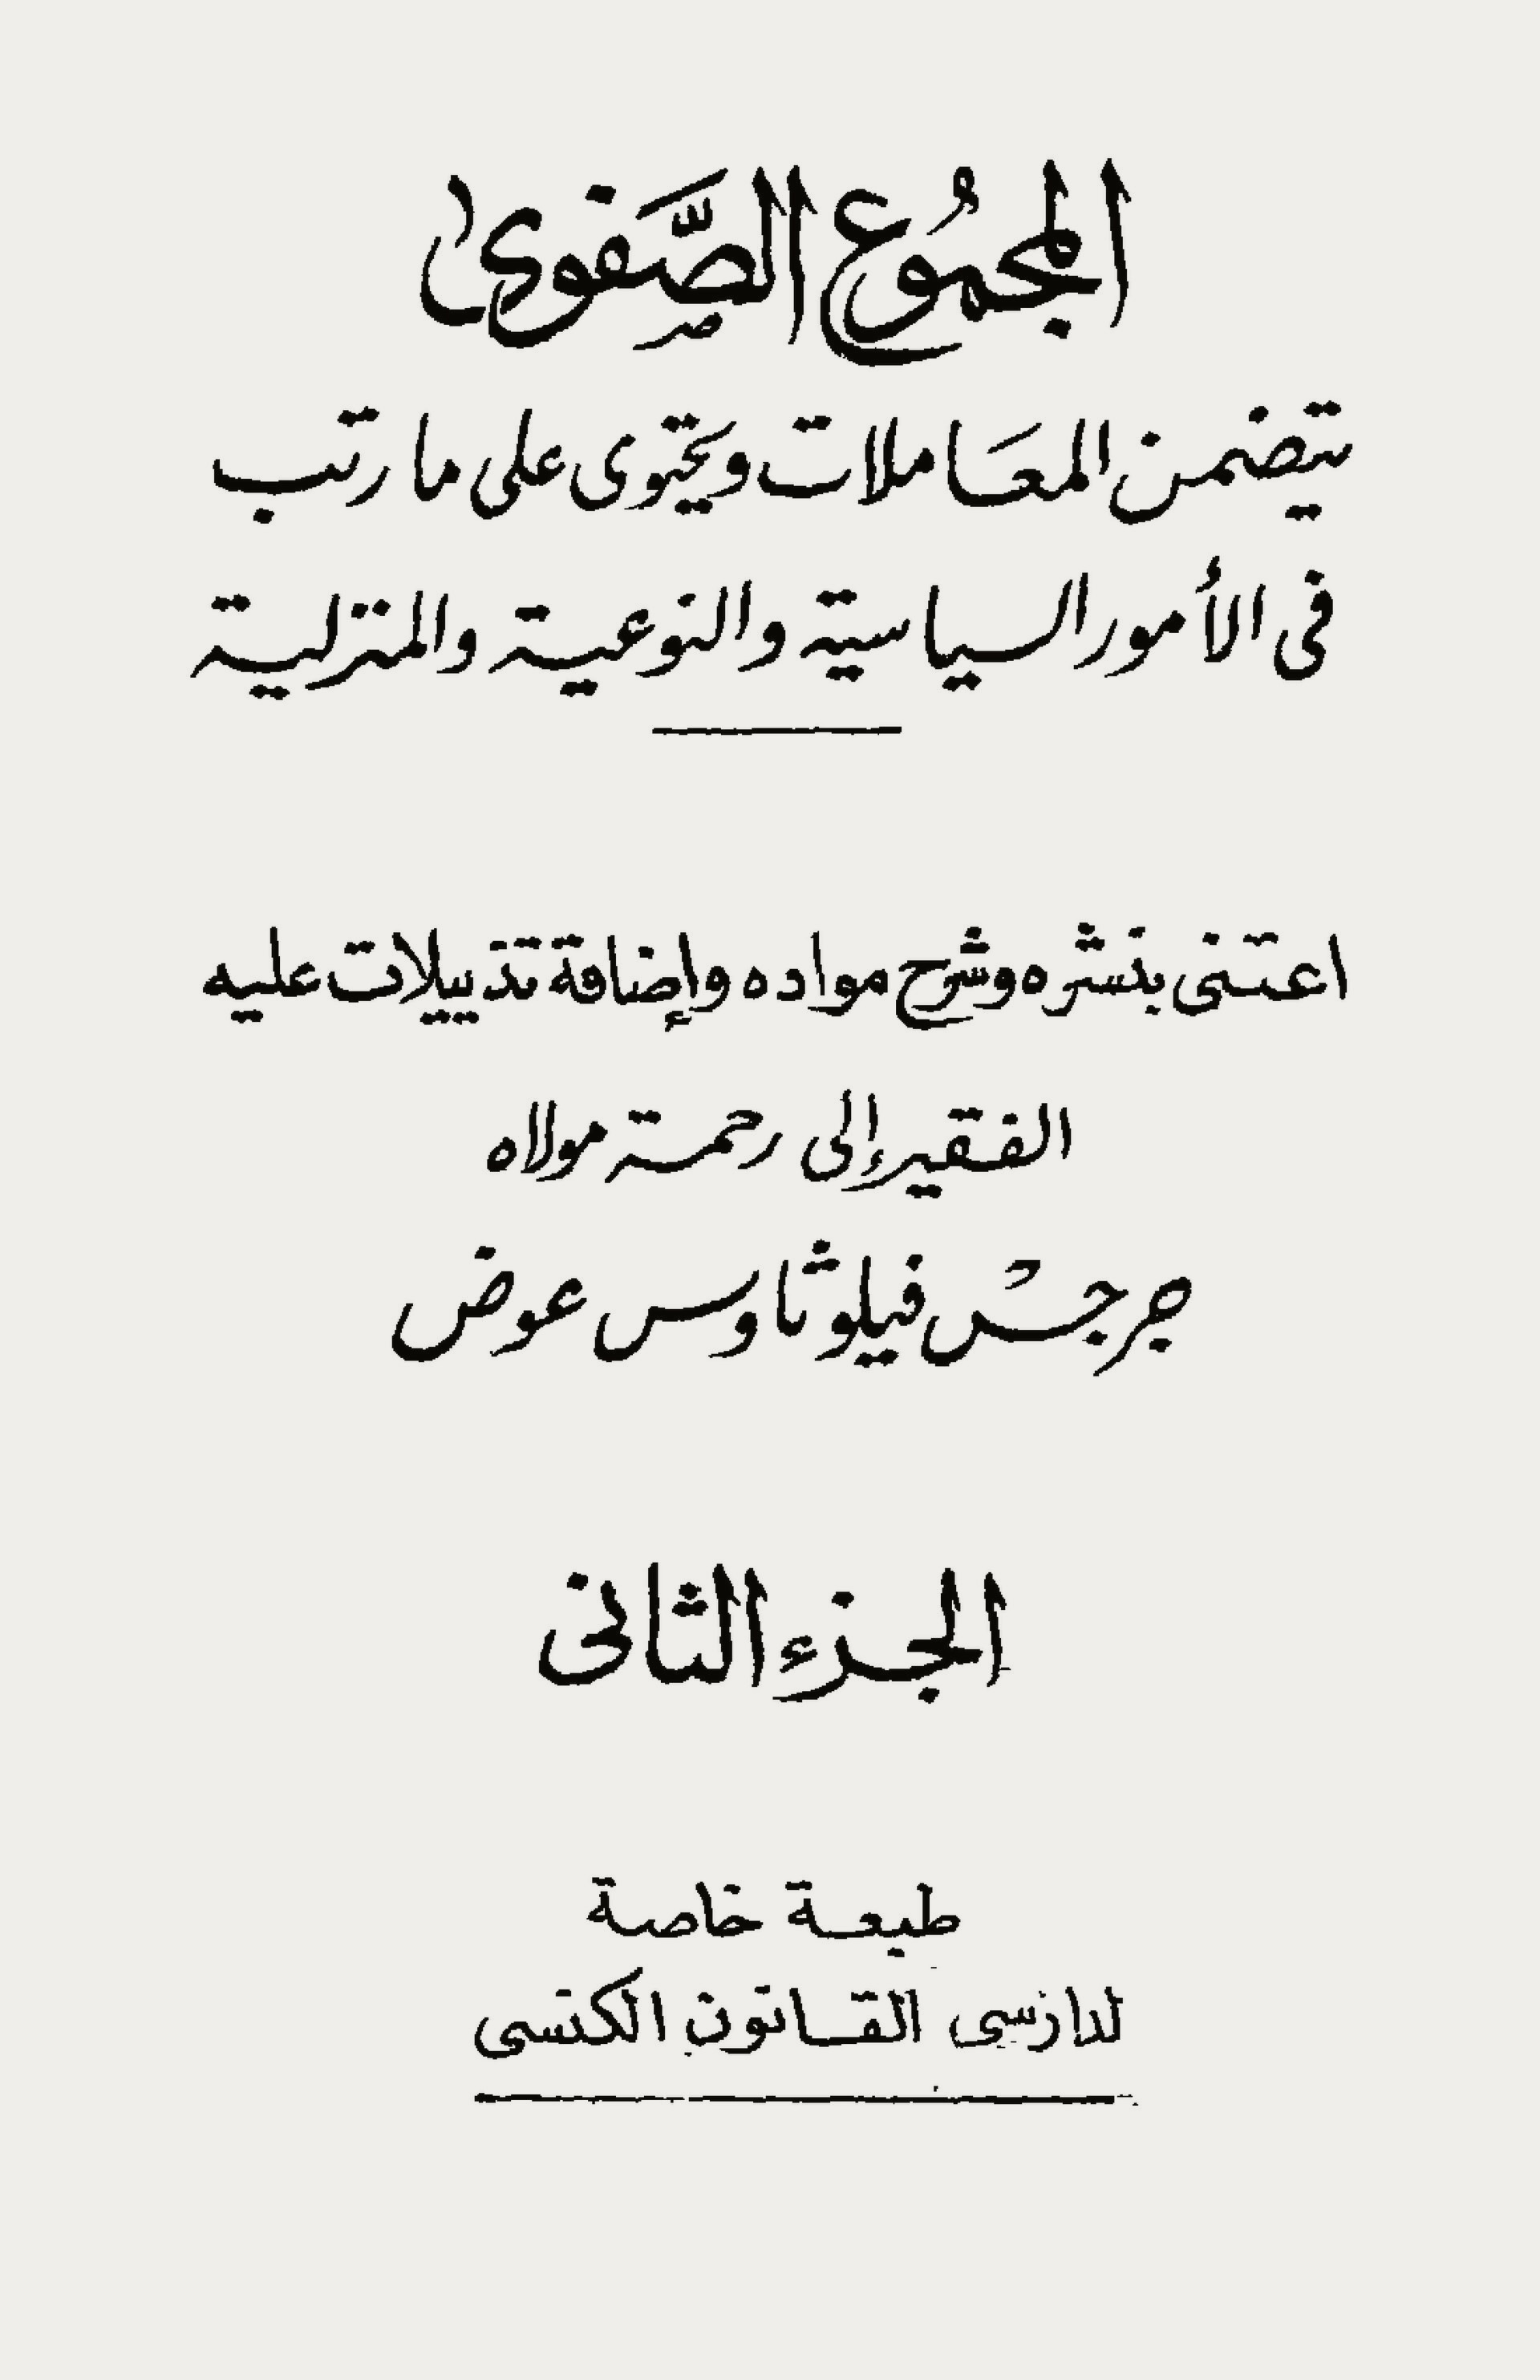 المجمُوع الصَّفوى
يتضمن المعَاملات ويحتوى على ما رتب
فى الأمور السياسية والنوعية والمنزلية
اعتنى بنشره وشرح مواده وإضافة تذييلات عليه
الفقير إلى رحمة مولاه
جرجس فيلوثاوس عوض
الجزء الثانى
طبعة خاصة
لدارسى القانون الكنسى